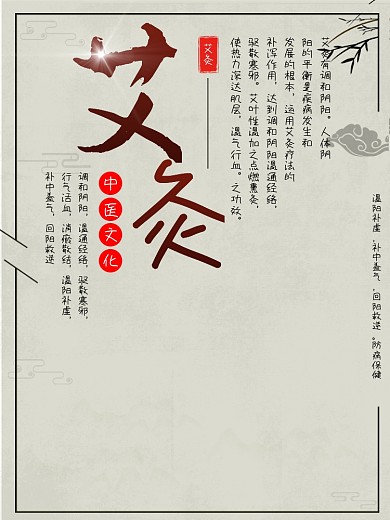 艾灸
艾灸
艾灸有调和阴阳。人体阴
阳的平衡是疾病发生和
发展的根本，运用艾灸疗法的
补泻作用，达到调和阴阳温通经络，
驱散寒邪。艾叶性温加之点燃熏灸，
使热力深达肌层，温气行血。之功效。
中医文化
调和阴阳，温通经络，驱散寒邪，
行气活血，消瘀散结，温阳补虚，
补中益气，回阳救逆
温阳补虚，补中益气，回阳救逆。防病保健